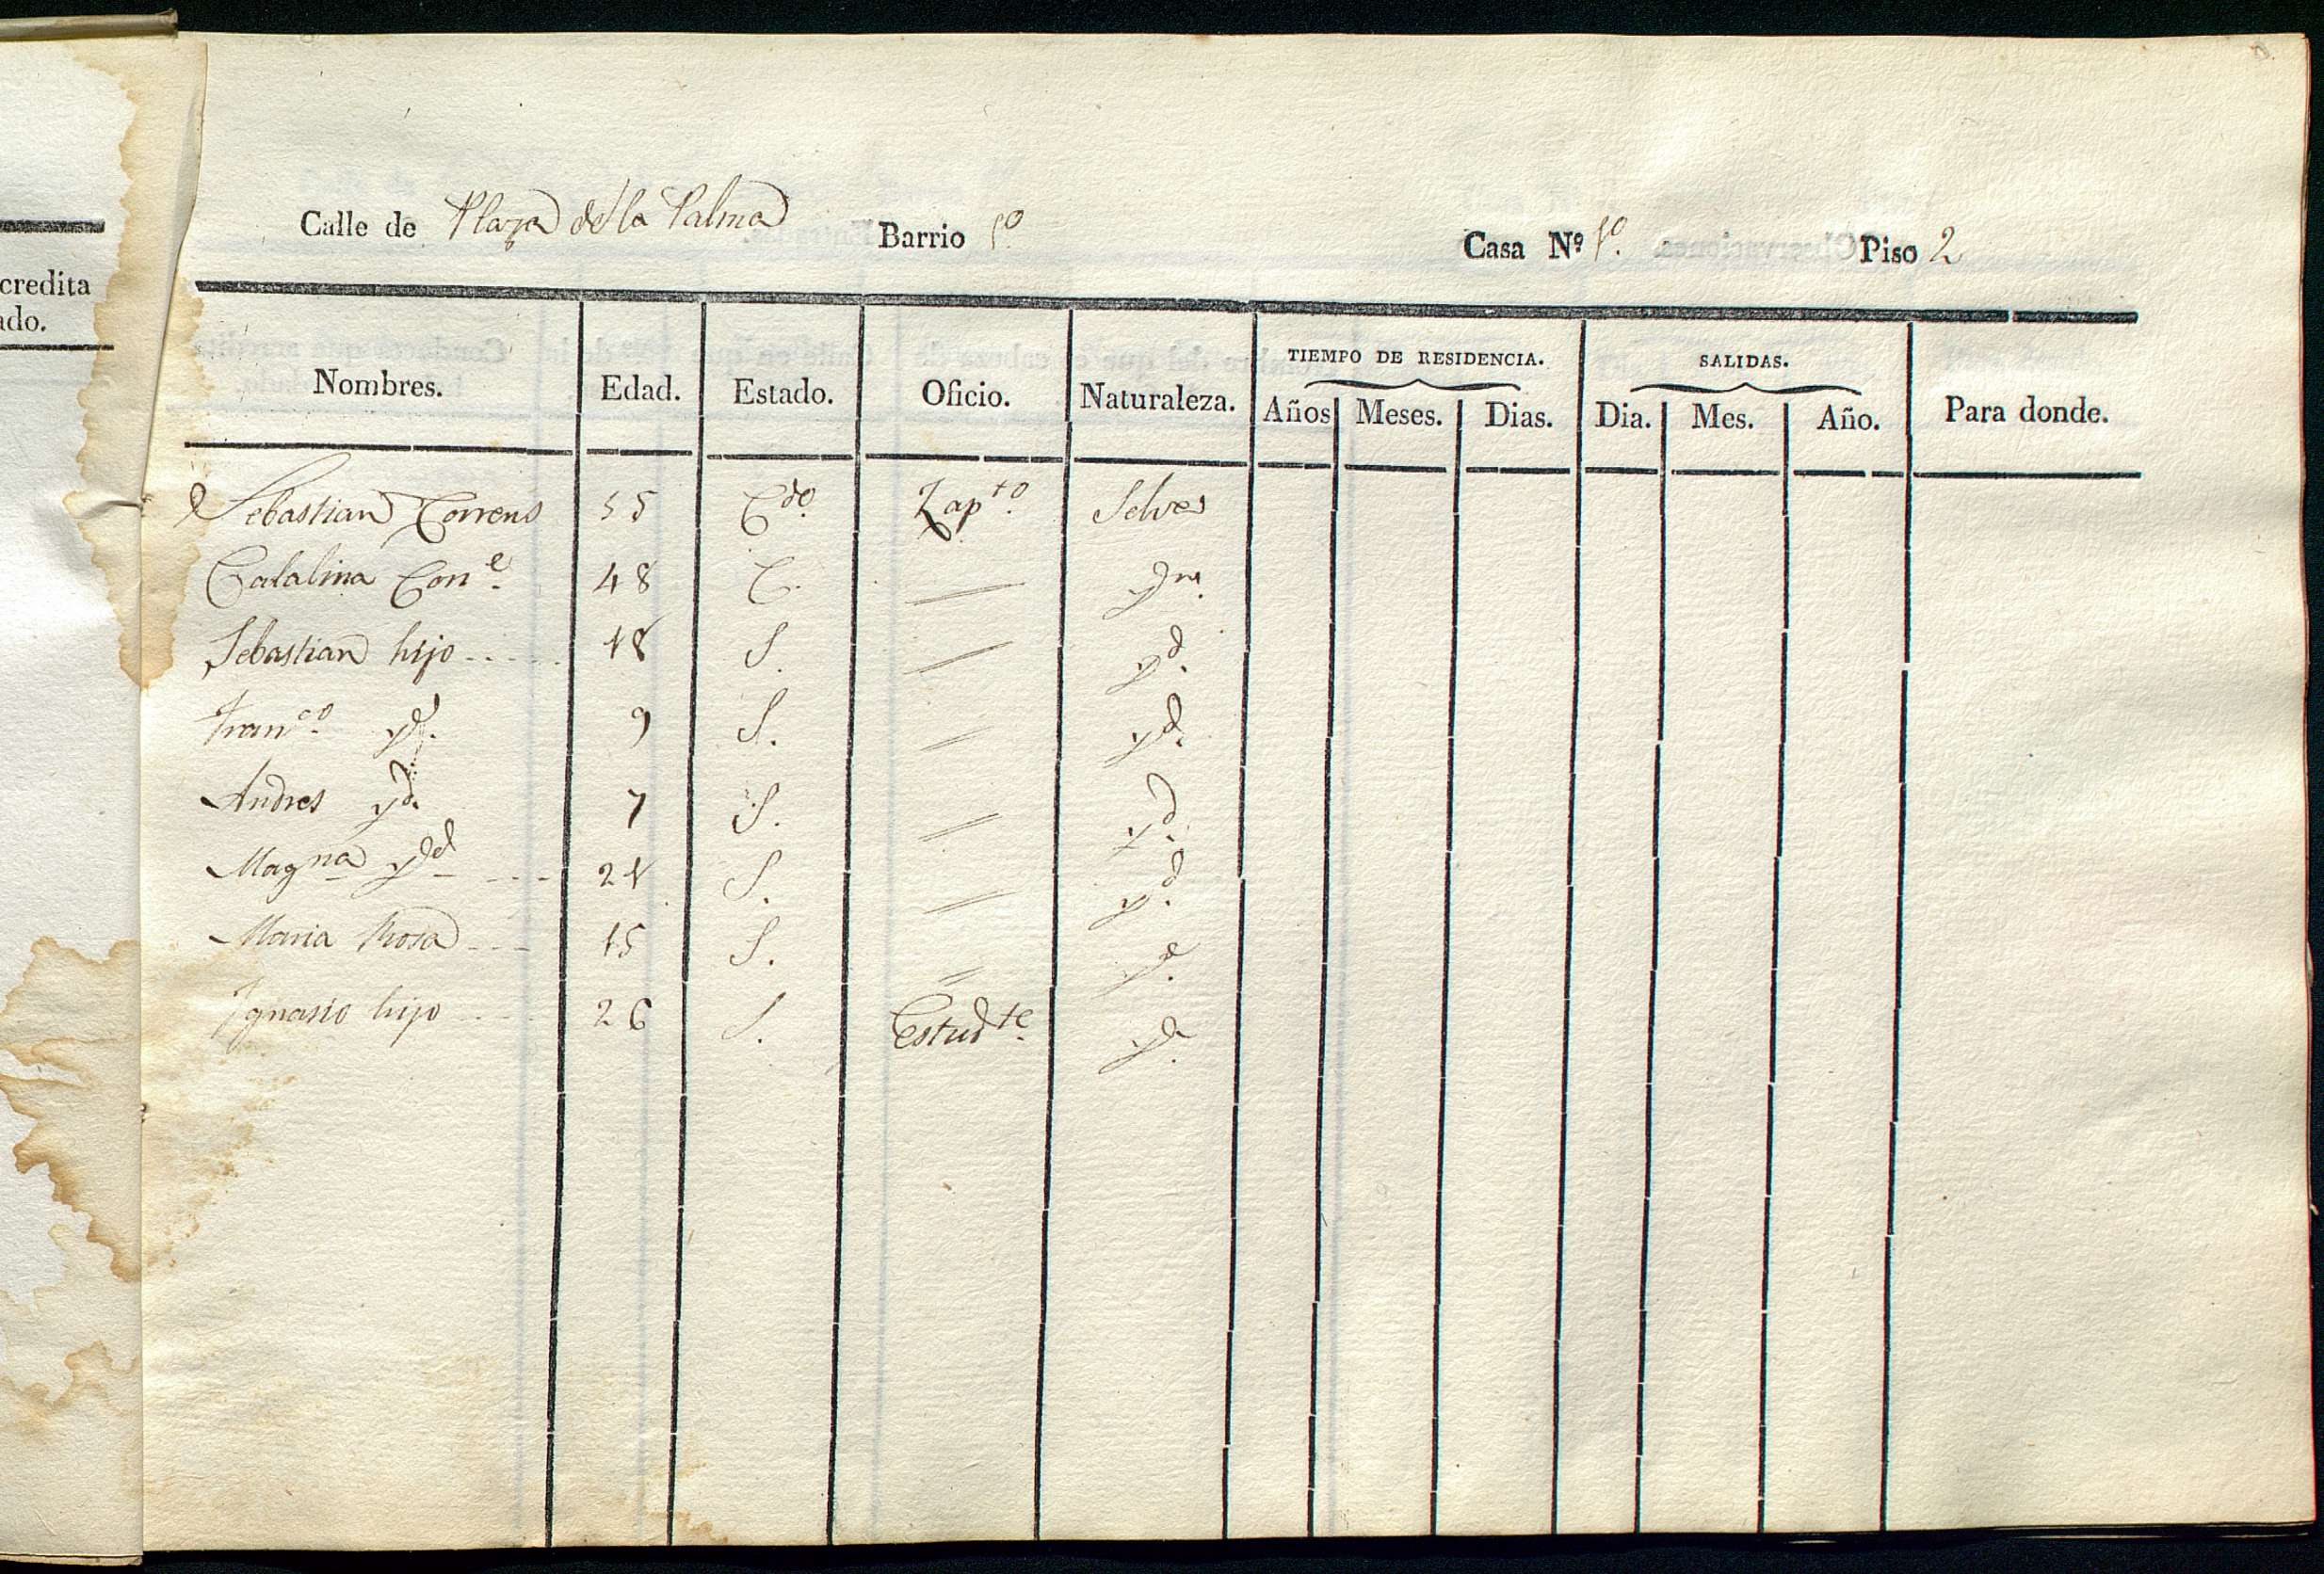 credita
ado.
Calle de Plaza de la Palma Barrio 1º Casa Nº 1º. Piso 2
TIEMPO DE RESIDENCIA. SALIDAS.
Nombres. Edad. Estado. Oficio. Naturaleza. Años Meses. Dias. Dia. Mes. Año. Para donde.
Sebastian Torrens 55 Cdo. Zapto. Selves
Catalina Cone. 48 C.
Sebastian hijo 18 S. yd.
Franco. yd. 9 S. yd.
Andres yd. 7 S. yd.
Magna yd 21 S. yd.
Maria Rosa 15 S. yd.
Ignasio hijo 26 S. Estudte. yd.